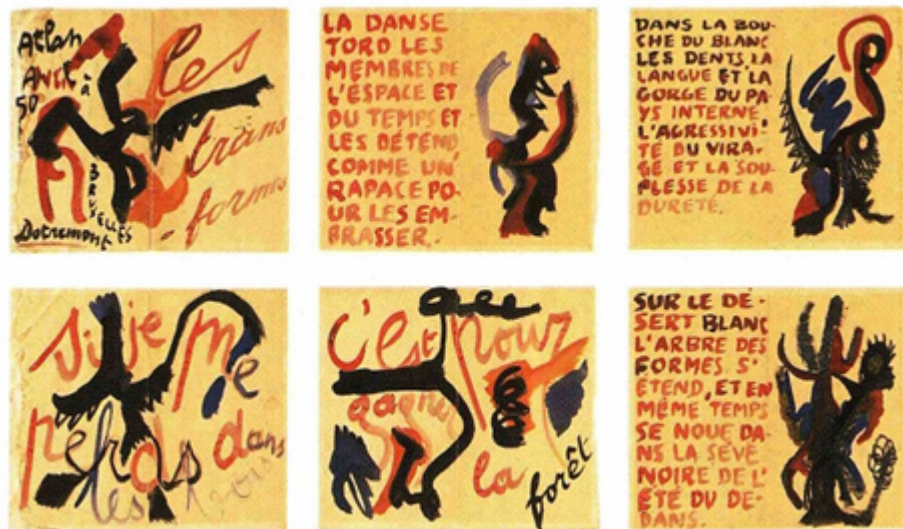 Atlan
AVRIL
50
à
BRUXELLES
Dotremont
les
trans
-formes
LA DANSE
TORD LES
MEMBRES DE
L'ESPACE ET
DU TEMPS ET
LES DÉTEND
COMME UN
RAPACE PO-
UR LES EM-
BRASSER.
DANS LA BOU-
CHE DU BLANC
LES DENTS, LA
LANGUE ET LA
GORGE DU PA-
YS INTERNE
L'AGRESSIVI-
TÉ DU VIRA-
GE ET LA SOU-
PLESSE DE LA
DURETÉ.
Si je me
perds dans
les
c'est que pour
gagner
la forêt
SUR LE DÉ-
SERT BLANC
L'ARBRE DES
FORMES S'
ÉTEND, ET EN
MÊME TEMPS
SE NOUE DA-
NS LA SÈVE
NOIRE DE L'
ÉTÉ DU DE-
DANS.